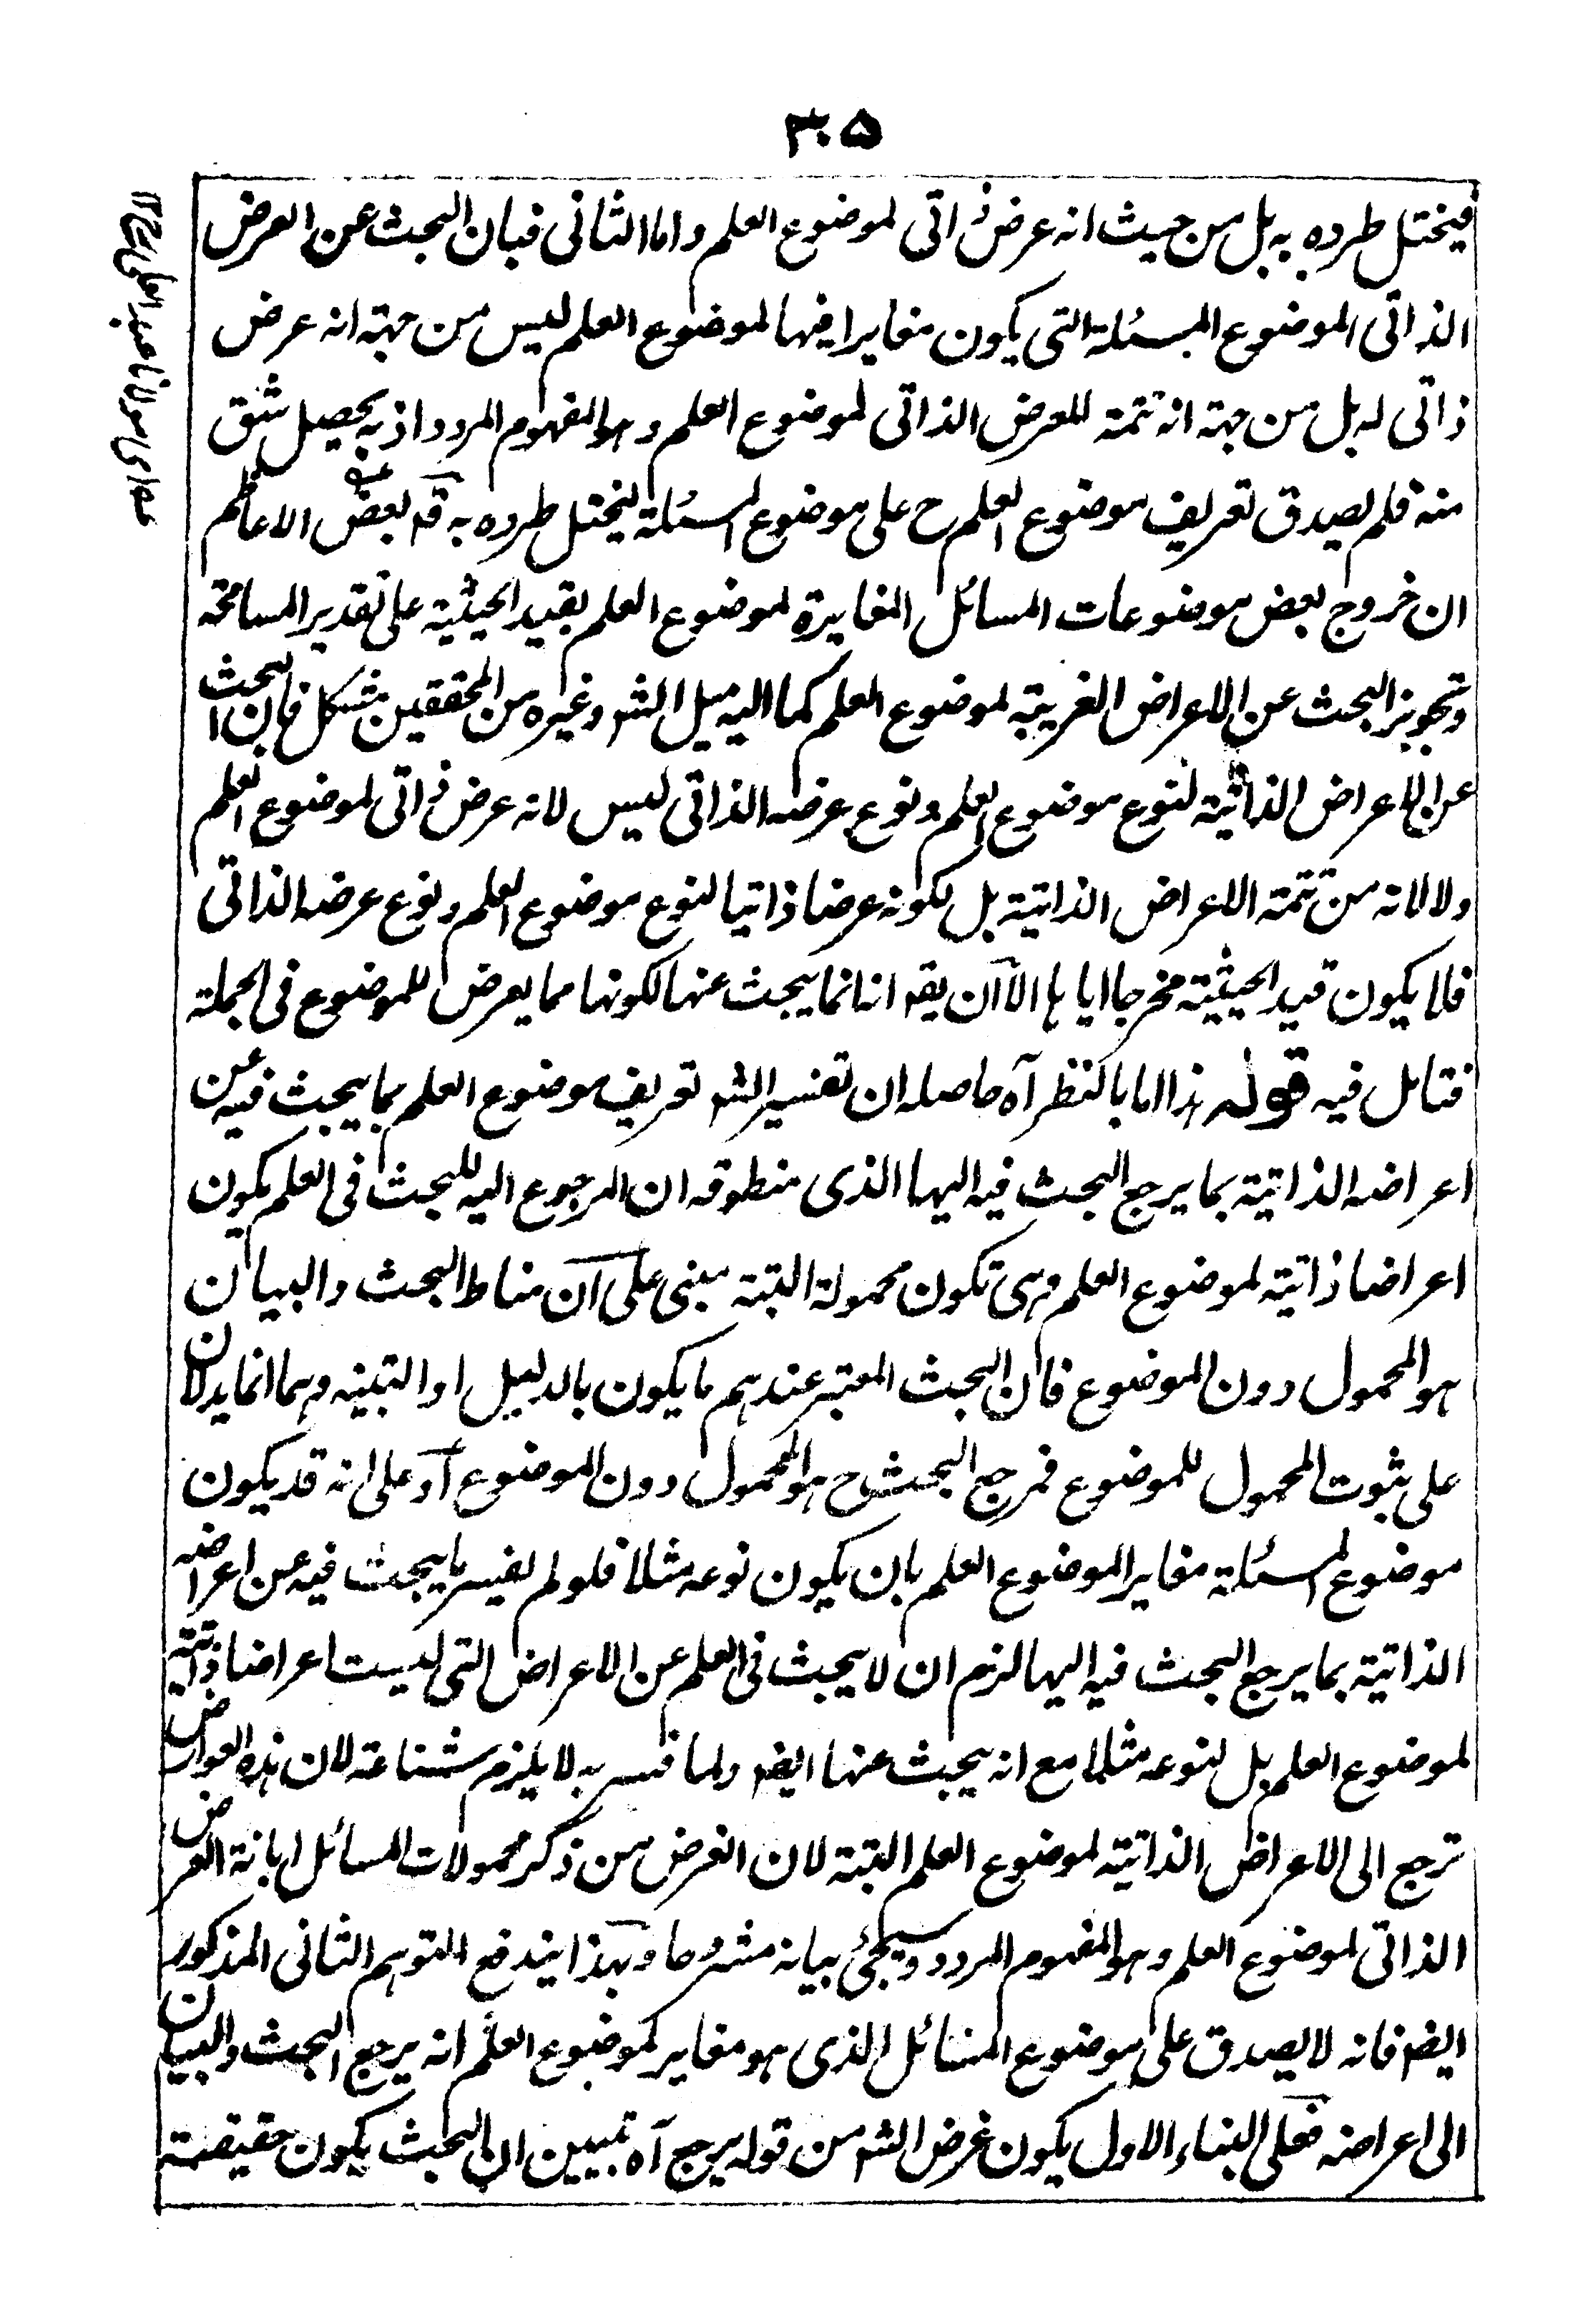 ٣٠٥
فيختل طرده به بل من حيث انه عرض ذاتى لموضوع العلم واما الثانى فبان البحث عن العرض
الذاتى الموضوع المسئلة التى يكون مغايرا فيها لموضوع العلم ليس من جهته انه عرض
ذاتى له بل من جهته انه تتمة للعرض الذاتى لموضوع العلم وهو المفهوم المردد اذ به يحصل شق
منه فلم يصدق تعريف موضوع العلم ح على موضوع المسئلة ليختل طرده به قد بعض الاعاظم
ان خروج بعض موضوعات المسائل المغايرة لموضوع العلم بقيد الحيثية على تقدير المسامحة
وتجويز البحث عن الاعراض الغريبة لموضوع العلم كما اليه ميل الشر وغيره من المحققين مشكل فان البحث
عن الاعراض الذاتية لنوع موضوع العلم ونوع عرضه الذاتى ليس لانه عرض ذاتى لموضوع العلم
ولا لانه من تتمة الاعراض الذاتية بل لكونه عرضا ذاتيا لنوع موضوع العلم ونوع عرضه الذاتى
فلا يكون قيد الحيثية مخرجا اياها الا ان يقر انا نما يبحث عنها لكونها مما يعرض للموضوع فى الجملة
فتامل فيه قوله هذا اما بالنظر آه حاصله ان تفسير الشر تعريف موضوع العلم بما يبحث فيه عن
اعراضه الذاتية بما يرجع البحث فيه اليها الذى منطوقه ان المرجوع اليه للبحث فى العلم يكون
اعراضا ذاتية لموضوع العلم وهى تكون محمولة البتة مبنى على ان مناط البحث والبيان
هو المحمول دون الموضوع فان البحث المعتبر عندهم ما يكون بالدليل او التنبيه وهما انما يدلان
على ثبوت المحمول للموضوع فمرجع البحث ح هو المحمول دون الموضوع او على انه قد يكون
موضوع المسئلة مغايرا لموضوع العلم بان يكون نوعه مثلا فلو لم يفسر ما يبحث فيه عن اعراضه
الذاتية بما يرجع البحث فيه اليها لزم ان لا يبحث فى العلم عن الاعراض التى ليست اعراضا ذاتية
لموضوع العلم بل لنوعه مثلا مع انه يبحث عنها ايضر ولما فسر به لا يلزم شناعة لان هذه العوارض
ترجع الى الاعراض الذاتية لموضوع العلم البتة لان الغرض من ذكر محمولات المسائل ابانة العرض
الذاتى لموضوع العلم وهو المفهوم المردد وسيجئ بيانه مشرحا وبهذا يندفع التوهم الثانى المذكور
ايضر فانه لا يصدق على موضوع المسائل الذى هو مغاير لموضوع العلم انه يرجع البحث والبيان
الى اعراضه فعلى البناء الاول يكون غرض الشر من قوله يرجع آه تبيين ان البحث يكون حقيقة